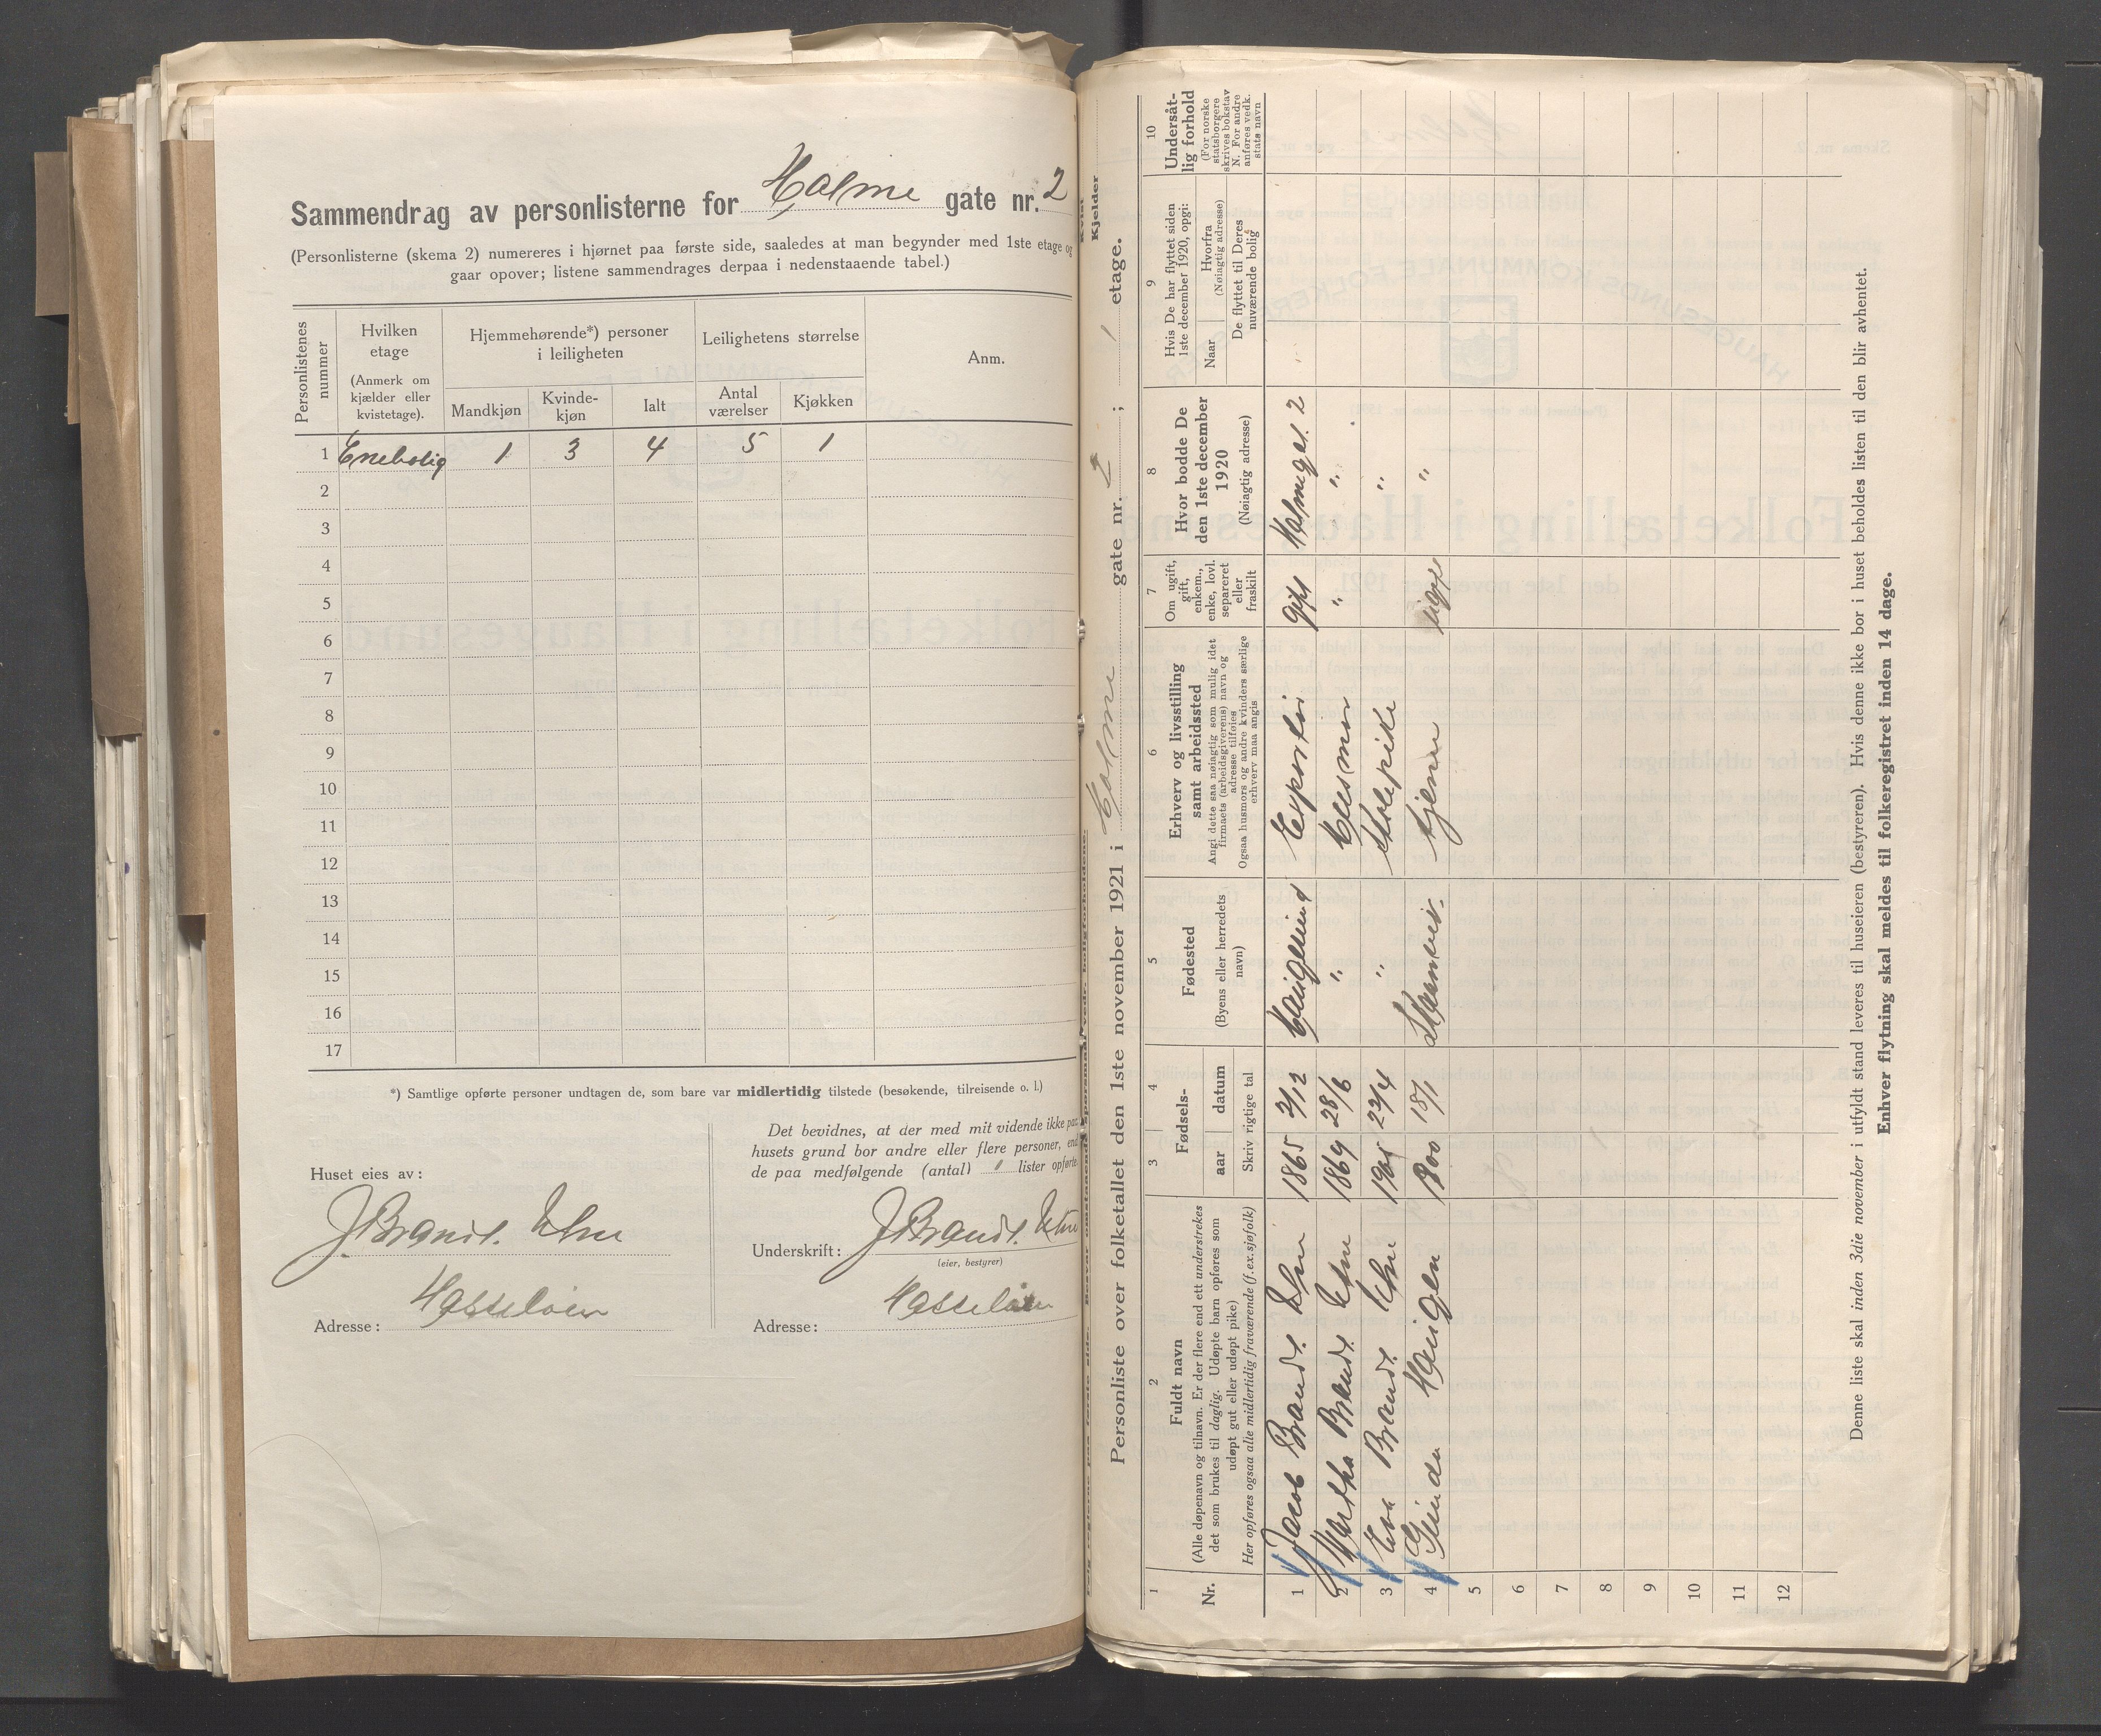 Sammendrag av personlisterne for Holme gate nr. 2
(Personlisterne (skema 2) numereres i hjørnet paa første side, saaledes at man begynder med 1ste etage og
gaar opover; listene sammendrages derpaa i nedenstaaende tabel.)
Personlistenes nummer
Hvilken etage (Anmerk om kjælder eller kvistetage).
Hjemmehørende*) personer i leiligheten
Leilighetens størrelse
Anm.
Mandkjøn Kvinde-kjøn Ialt Antal værelser Kjøkken
1 Enebolig 1 3 4 5 1
2
3
4
5
6
7
8
9
10
11
12
13
14
15
16
17
*) Samtlige opførte personer undtagen de, som bare var midlertidig tilstede (besøkende, tilreisende o. l.)
Huset eies av:
J. Brandt
Adresse: Hasseløen
Det bevidnes, at der med mit vidende ikke paa
husets grund bor andre eller flere personer, end
de paa medfølgende (antal) lister opførte
Underskrift: J. Brandt
(eier, bestyrer)
Adresse: Hasseløen
Kvist
Kjelder
Personliste over folketallet den 1ste november 1921 i Holme gate nr. 2; 1 etage.
1
Nr.
2
Fuldt navn
(Alle døpenavn og tilnavn. Er der flere end ett understrekes
det som brukes til daglig. Udøpte barn opføres som
udøpt gut eller udøpt pike)
Her opføres ogsaa alle midlertidig fraværende (f.ex.sjøfolk)
3 4
Fødsels-
aar datum
Skriv rigtige tal
5
Fødested
(Byens eller herredets
navn)
6
Erhverv og livsstilling
samt arbeidssted
Angi dette saa nøiagtig som mulig idet
firmaets (arbeidsgiverens) navn og
adresse tilføies
Ogsaa husmors og andre kvinders særlige
erhverv maa angis
7
Om ugift,
gift,
enkem.,
enke, lovl.
separeret
eller
fraskilt
8
Hvor bodde De
den 1ste december
1920
(Nøiagtig adresse)
9
Hvis De har flyttet siden
1ste december 1920, opgi:
Naar
Hvorfra
(Nøiagtig adresse)
De flyttet til Deres
nuværende bolig
10
Undersåt-
lig forhold
(For norske
statsborgere
skrives bokstav
N. For andre
anføres vedk.
stats navn
1 Jacob Brandt 1865 2/12 Haugesund Exportør gift Holmegt. 2
2 Martha Brandt 1869 28/6 " Husmor " "
3 Brandt 1905 23/4 " Skolepike "
4 1900 18/1 tjener ugift "
5
6
7
8
9
10
11
12
Denne liste skal inden 3die november i utfyldt stand leveres til huseieren (bestyreren). Hvis denne ikke bor i huset beholdes listen til den blir avhentet.
Enhver flytning skal meldes til folkeregistret inden 14 dage.